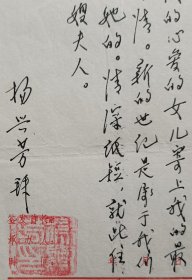 的心爱的女儿寄上我的最
情。新的世纪是属于我们
她的。情深纸短，就此住
嫂夫人。
杨兴芳拜